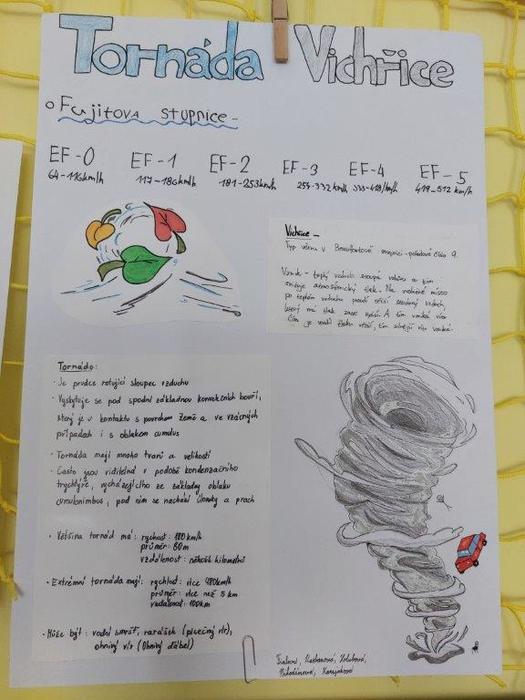 Tornáda Vichřice
Fujitova stupnice-
EF-0 EF-1 EF-2 EF-3 EF-4 EF-5
64-116km/h 117-180km/h 181-253km/h 254-332km/h 333-418/km/h 419-512 km/h
Vichřice -
Typ větru v Beaufortově stupnici - pořadové číslo 9.
Vznik - teplý vzduch stoupá vzhůru a tím
snižuje atmosférický tlak. Na místo
po teplém vzduchu proudí studený vzduch,
který má tlak zase vyšší. A tím vzniká vítr.
Čím je rozdíl tlaku větší, tím silnější vítr vzniká.
Tornádo:
· Je prudce rotující sloupec vzduchu
· Vyskytuje se pod spodní základnou konvekčních bouří,
který je v kontaktu s povrchem země a ve vzácných
případech i s oblakem cumulus
· Tornáda mají mnoho tvarů a velikostí
· Často jsou viditelná v podobě kondenzačního
trychtýře, vycházejícího ze základny oblaku
cumulonimbus, pod ním se nachází úlomky a prach
· Většina tornád má: rychlost: 180km/h
průměr: 80m
vzdálenost: několik kilometrů
· Extrémní tornáda mají: rychlost: více 480km/h
průměr: více než 3 km
vzdálenost: 100km
· Může být: vodní smršť, rarášek (písečný vír),
ohnivý vír (Ohnivý ďábel)